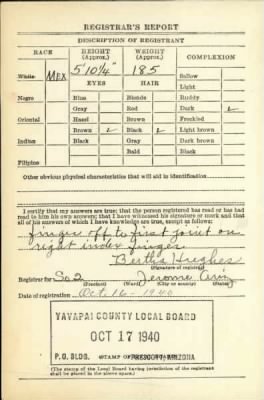 REGISTRAR'S REPORT
DESCRIPTION OF REGISTRANT
RACE
HEIGHT (Approx.)
WEIGHT (Approx.)
COMPLEXION
White
MEX
5'10¼"
185
Sallow
EYES
HAIR
Light
Negro
Blue
Blonde
Ruddy
Gray
Red
Dark ✓
Oriental
Hazel
Brown
Freckled
Brown ✓
Black ✓
Light brown
Indian
Black
Gray
Dark brown
Bald
Black
Filipino
Other obvious physical characteristics that will aid in identification
I certify that my answers are true; that the person registered has read or has had
read to him his own answers; that I have witnessed his signature or mark and that
all of his answers of which I have knowledge are true, except as follows:
finger off to first joint on
right index finger
Bertha Hughes
(Signature of registrar)
Registrar for So 2 Jerome Ariz
(Precinct) (Ward) (City or county) (State)
Date of registration Oct. 16 - 1940
YAVAPAI COUNTY LOCAL BOARD
OCT 17 1940
P.O. BLDG. PRESCOTT, ARIZONA
(STAMP OF LOCAL BOARD)
(The stamp of the Local Board having jurisdiction of the registrant
shall be placed in the above space.)